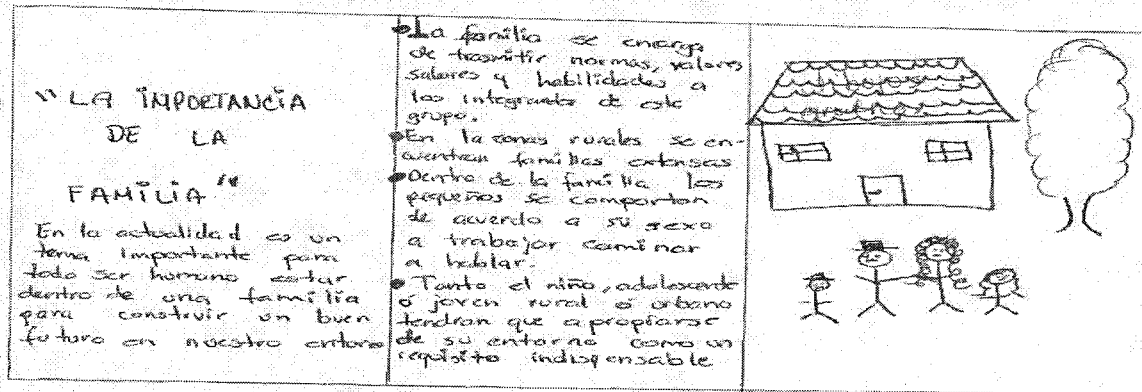 "LA IMPORTANCIA
DE LA
FAMILIA"
En la actualidad es un
tema importante para
todo ser humano estar
dentro de una familia
para construir un buen
futuro en nuestro entorno
La familia se encarga
de trasmitir normas, valores
saberes y habilidades a
los integrantes de este
grupo.
En la zonas rurales se en-
cuentran familias extensas
Dentro de la familia los
pequeños se comportan
de acuerdo a su sexo
a trabajar caminar
a hablar.
Tanto el niño, adolescente
ó joven rural ó urbano
tendran que apropiarse
de su entorno como un
requisito indispensable